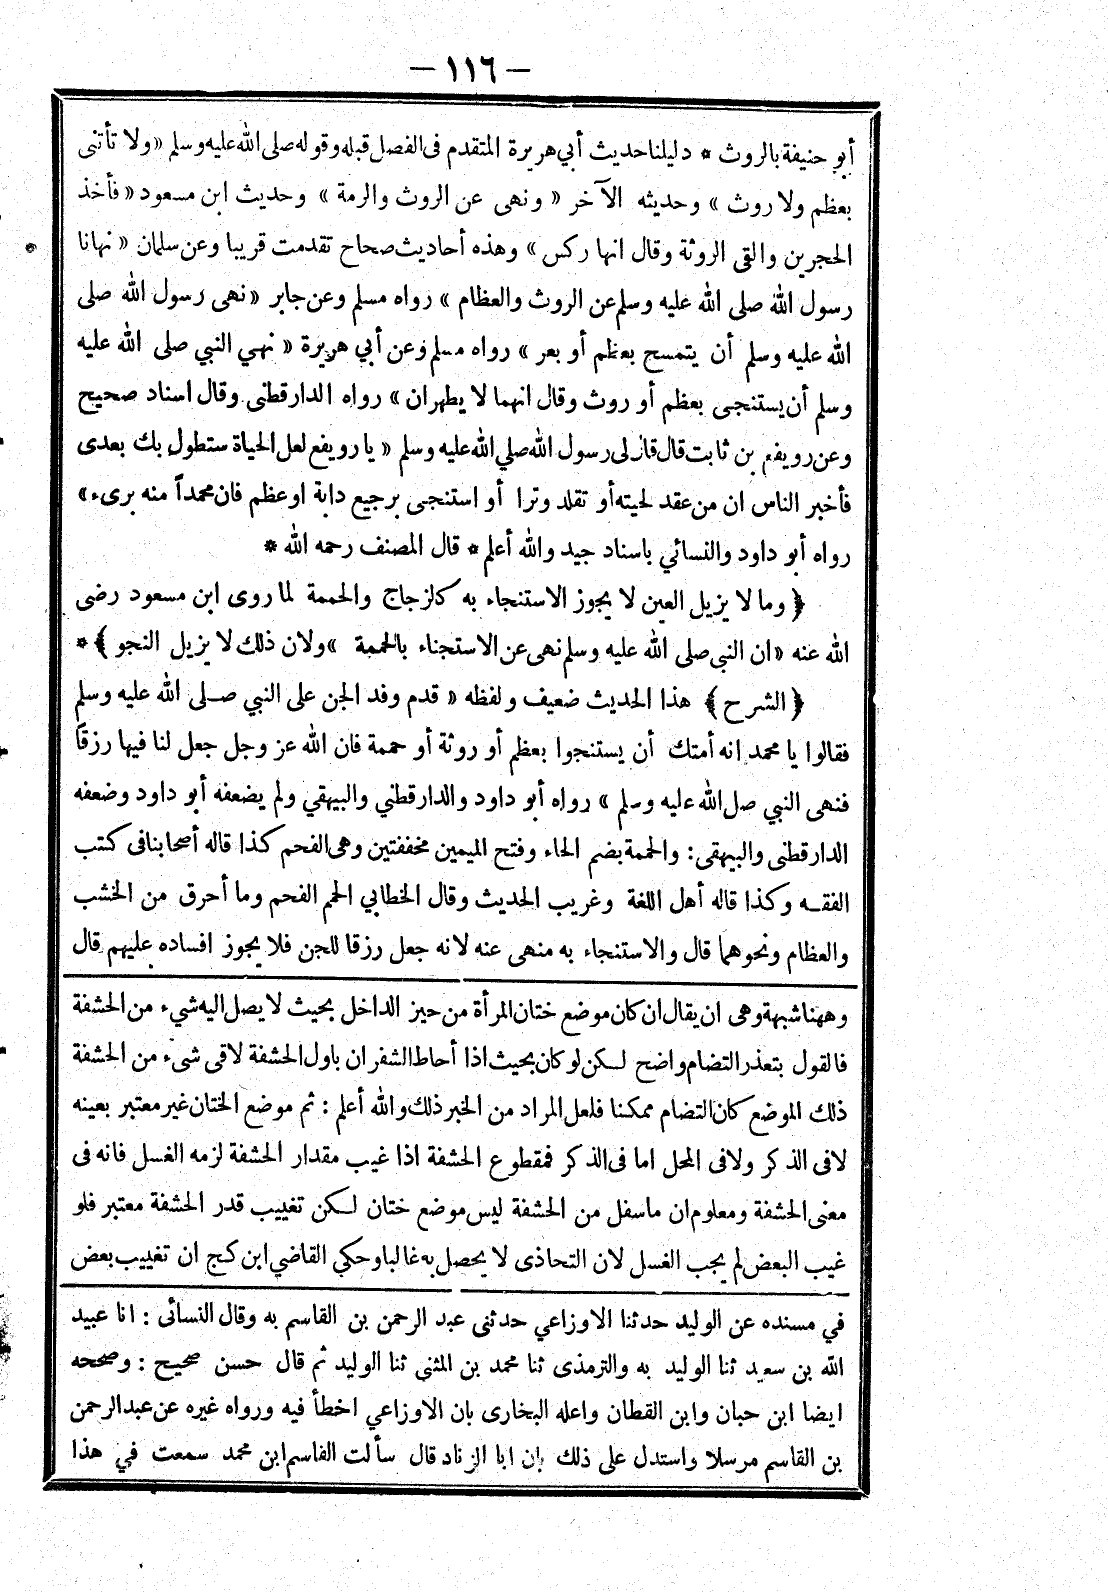 — ١١٦ —
أبو حنيفة بالروث * دليلنا حديث أبي هريرة المتقدم فى الفصل قبله وقوله صلى الله عليه وسلم « ولا تأتنى
بعظم ولا روث » وحديثه الآخر « ونهى عن الروث والرمة » وحديث ابن مسعود « فأخذ
الحجرين والقى الروثة وقال انها ركس » وهذه أحاديث صحاح تقدمت قريبا وعن سلمان « نهانا
رسول الله صلى الله عليه وسلم عن الروث والعظام » رواه مسلم وعن جابر « نهى رسول الله صلى
الله عليه وسلم أن يتمسح بعظم أو بعر » رواه مسلم وعن أبي هريرة « نهي النبي صلى الله عليه
وسلم أن يستنجى بعظم أو روث وقال انهما لا يطهران » رواه الدارقطنى وقال اسناد صحيح
وعن رويفع بن ثابت قال قال لى رسول الله صلي الله عليه وسلم « يا رويفع لعل الحياة ستطول بك بعدى
فأخبر الناس ان من عقد لحيته أو تقلد وترا أو استنجى برجيع دابة او عظم فان محمداً منه برىء »
رواه أبو داود والنسائي باسناد جيد والله أعلم * قال المصنف رحمه الله *
﴿ وما لا يزيل العين لا يجوز الاستنجاء به كالزجاج والحممة لما روى ابن مسعود رضى
الله عنه « ان النبي صلى الله عليه وسلم نهى عن الاستجناء بالحممة » ولان ذلك لا يزيل النجو ﴾ *
﴿ الشرح ﴾ هذا الحديث ضعيف ولفظه « قدم وفد الجن على النبي صلى الله عليه وسلم
فقالوا يا محمد انه أمتك أن يستنجوا بعظم أو روثة أو حممة فان الله عز وجل جعل لنا فيها رزقاً
فنهى النبي صل الله عليه وسلم » رواه أبو داود والدارقطني والبيهقي ولم يضعفه أبو داود وضعفه
الدارقطنى والبيهقى : والحممة بضم الحاء وفتح الميمين مخففتين وهى الفحم كذا قاله أصحابنا فى كتب
الفقه وكذا قاله أهل اللغة وغريب الحديث وقال الخطابي الحمم الفحم وما أحرق من الخشب
والعظام ونحوهما قال والاستنجاء به منهى عنه لانه جعل رزقا للجن فلا يجوز افساده عليهم قال
وههنا شبهة وهى ان يقال ان كان موضع ختان المرأة من حيز الداخل بحيث لا يصل اليه شيء من الحشفة
فالقول بتعذر التضام واضح لكن لو كان بحيث اذا أحاط الشفران باول الحشفة لاقى شىء من الحشفة
ذلك الموضع كان التضام ممكنا فلعل المراد من الخبر ذلك والله أعلم : ثم موضع الختان غير معتبر بعينه
لا فى الذكر ولا فى المحل اما فى الذكر فمقطوع الحشفة اذا غيب مقدار الحشفة لزمه الغسل فانه فى
معنى الحشفة ومعلوم ان ماسفل من الحشفة ليس موضع ختان لكن تغييب قدر الحشفة معتبر فلو
غيب البعض لم يجب الغسل لان التحاذى لا يحصل به غالبا وحكي القاضي ابن كج ان تغييب بعض
في مسنده عن الوليد حدثنا الاوزاعي حدثنى عبد الرحمن بن القاسم به وقال النسائى : انا عبيد
الله بن سعيد ثنا الوليد به والترمذى ثنا محمد بن المثنى ثنا الوليد ثم قال حسن صحيح : وصححه
ايضا ابن حبان وابن القطان واعله البخارى بان الاوزاعي اخطأ فيه ورواه غيره عن عبد الرحمن
بن القاسم مرسلا واستدل على ذلك بان ابا الزناد قال سألت القاسم ابن محمد سمعت في هذا